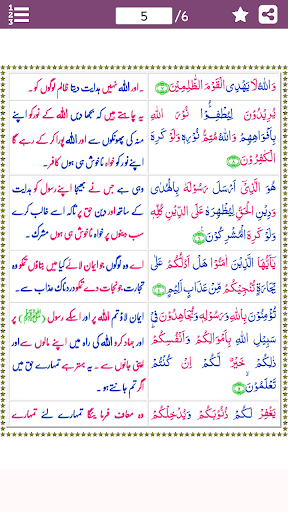 5 /6
وَاللّٰهُ لَا یَهْدِی الْقَوْمَ الظّٰلِمِیْنَ ﴿۷﴾
۔ اور اللہ نہیں ہدایت دیتا ظالم لوگوں کو ۔
یُرِیْدُوْنَ لِیُطْفِـُٔوْا نُوْرَ اللّٰهِ
بِاَفْوَاهِهِمْ وَاللّٰهُ مُتِمُّ نُوْرِهٖ وَلَوْ كَرِهَ
الْكٰفِرُوْنَ ﴿۸﴾
یہ چاہتے ہیں کہ بجھا دیں اللہ کے نور کو اپنے
منہ کی پھونکوں سے اور اللہ پورا کر کے رہے گا
اپنے نور کو خواہ ناخوش ہی ہوں کافر۔
هُوَ الَّذِیْۤ اَرْسَلَ رَسُوْلَهٗ بِالْهُدٰی
وَدِیْنِ الْحَقِّ لِیُظْهِرَهٗ عَلَی الدِّیْنِ كُلِّهٖ
وَلَوْ كَرِهَ الْمُشْرِكُوْنَ ﴿۹﴾
وہی ہے جس نے بھیجا اپنے رسول کو ہدایت
کے ساتھ اور دین حق پر تاکہ اسے غالب کرے
سب دینوں پر خواہ ناخوش ہی ہوں مشرک ۔
یٰۤاَیُّهَا الَّذِیْنَ اٰمَنُوْا هَلْ اَدُلُّكُمْ عَلٰی
تِجَارَةٍ تُنْجِیْكُمْ مِّنْ عَذَابٍ اَلِیْمٍ ﴿۱۰﴾
اے وہ لوگو جو ایمان لائے کیا میں بتاؤں تمکو وہ
تجارت جو نجات دے تمکو دردناک عذاب سے ۔
تُؤْمِنُوْنَ بِاللّٰهِ وَرَسُوْلِهٖ وَتُجَاهِدُوْنَ فِیْ
سَبِیْلِ اللّٰهِ بِاَمْوَالِكُمْ وَاَنْفُسِكُمْ
ذٰلِكُمْ خَیْرٌ لَّكُمْ اِنْ كُنْتُمْ
تَعْلَمُوْنَ ﴿۱۱﴾
ایمان لاؤ تم اللہ پر اور اسکے رسول (ﷺ) پر
اور جہاد کرو اللہ کی راہ میں اپنے مالوں سے اور
اپنی جانوں سے ۔ یہ بہتر ہے تمہارے حق میں
اگر تم جانتے ہو ۔
یَغْفِرْ لَكُمْ ذُنُوْبَكُمْ وَیُدْخِلْكُمْ
وہ معاف فرما دیگا تمہارے لئے تمہارے